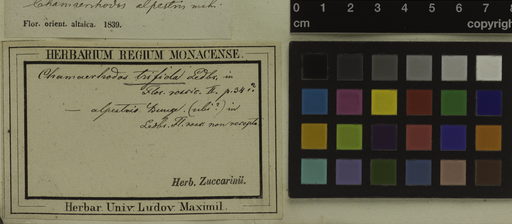 Chamaerhodos alpestris mihi.
Flor. orient. altaica. 1839.
HERBARIUM REGIUM MONACENSE.
Chamaerhodos trifida Ledbr. in
Flor. rossic. II. p. 34??
— alpestris Bunge. (ubi?) in
Ledbr. Fl. ross. non recepta.
Herb. Zuccarinii.
Herbar. Univ. Ludov. Maximil.
0 1 2 3 4 5 6 7 8
cm
copyrigh